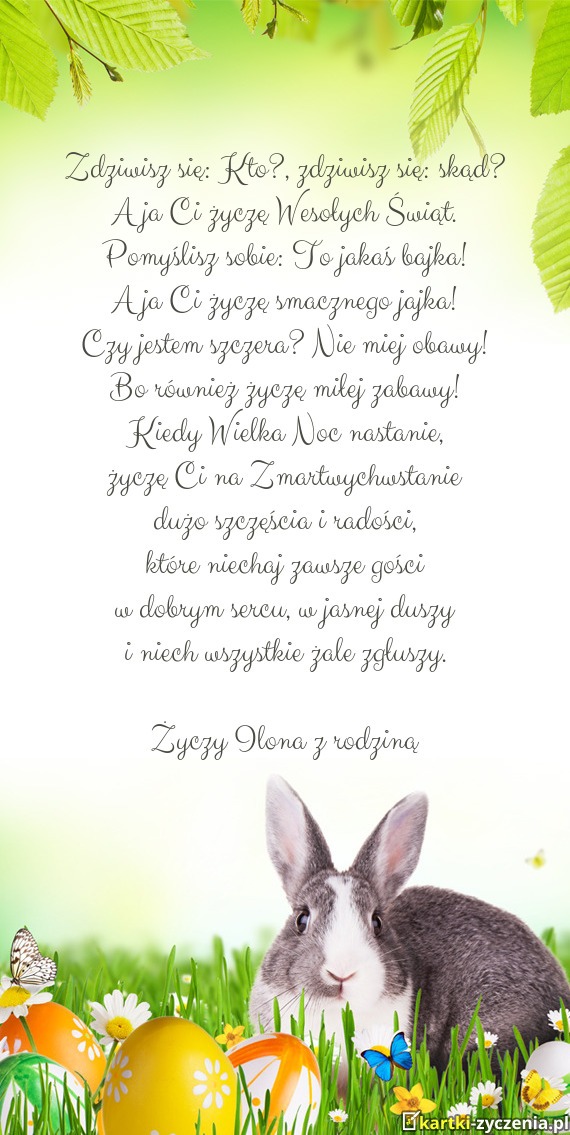 Zdziwisz się: Kto?, zdziwisz się: skąd?
A ja Ci życzę Wesołych Świąt.
Pomyślisz sobie: To jakaś bajka!
A ja Ci życzę smacznego jajka!
Czy jestem szczera? Nie miej obawy!
Bo również życzę miłej zabawy!
Kiedy Wielka Noc nastanie,
życzę Ci na Zmartwychwstanie
dużo szczęścia i radości,
które niechaj zawsze gości
w dobrym sercu, w jasnej duszy
i niech wszystkie żale zgłuszy.
Życzy Ilona z rodziną
kartki-zyczenia.pl